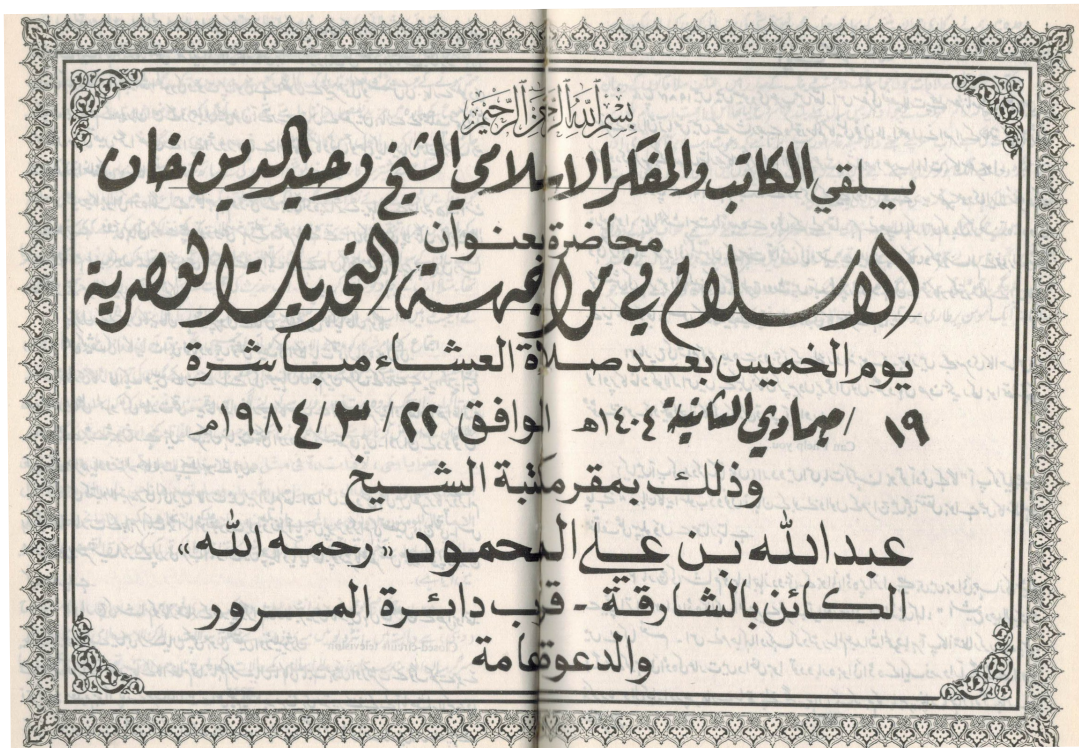 بسم الله الرحمن الرحيم
يلقي الكاتب والمفكر الاسلامي الشيخ وحيد الدين خان
محاضرة بعنوان
الاسلام في مواجهة التحديات العصرية
يوم الخميس بعد صلاة العشاء مباشرة
١٩ /جمادي الثانية ١٤٠٤هـ الموافق ٢٢/ ٣/ ١٩٨٤م
وذلك بمقر مكتبة الشيخ
عبد الله بن علي المحمود «رحمه الله»
الكائن بالشارقة - قرب دائرة المرور
والدعوة عامة